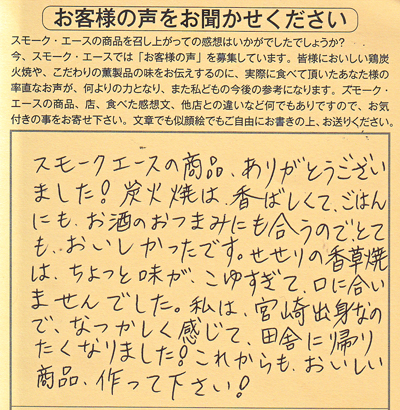 お客様の声をお聞かせください
スモーク・エースの商品を召し上がっての感想はいかがでしたでしょうか?
今、スモーク・エースでは「お客様の声」を募集しています。皆様においしい鶏炭
火焼や、こだわりの薫製品の味をお伝えするのに、実際に食べて頂いたあなた様の
率直なお声が、何よりの力となり、また私どもの今後の参考になります。スモーク・
エースの商品、店、食べた感想文、他店との違いなど何でもありですので、お気
付きの事をお寄せ下さい。文章でも似顔絵でもご自由にお書きの上、お送りください。
スモークエースの商品、ありがとうござい
ました!炭火焼は、香ばしくて、ごはん
にも、お酒のおつまみにも合うので、とて
も、おいしかったです。せせりの香草焼
は、ちょっと味が、こゆすぎて、口に合い
ませんでした。私は、宮崎出身なの
で、なつかしく感じて、田舎に帰り
たくなりました!これからも、おいしい
商品、作って下さい!